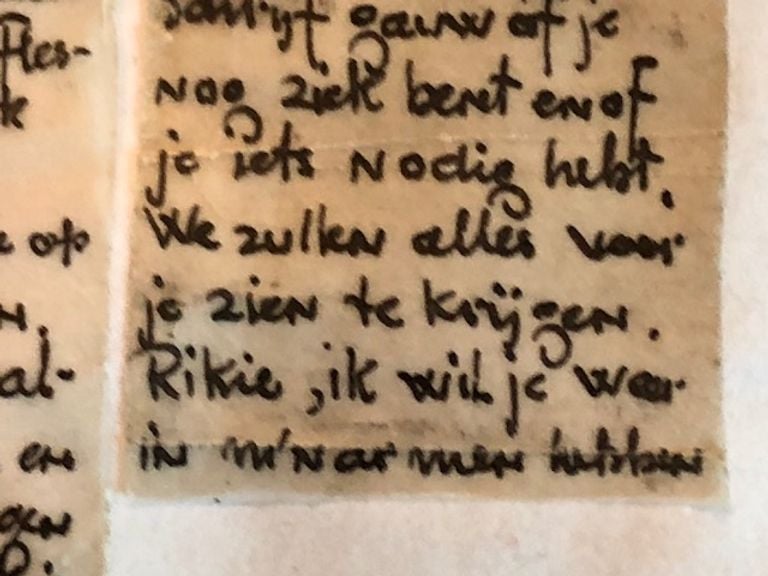 fles-
k
op
n.
al-
en
gen
o.
schrijf gauw of je
nog ziek bent en of
je iets nodig hebt.
We zullen alles voor
je zien te krijgen.
Rikie, ik wil je weer
in m'n armen hebben